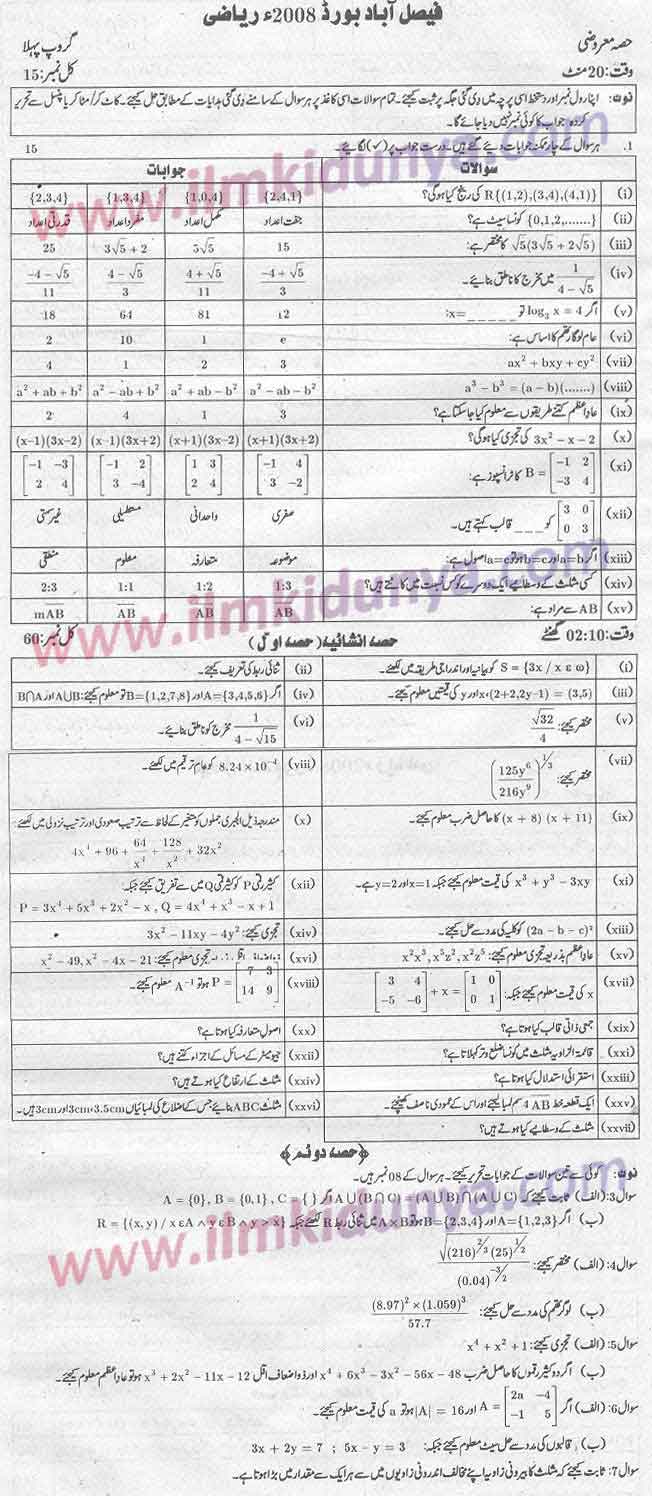 فیصل آباد بورڈ 2008ء ریاضی
حصہ معروضی گروپ پہلا
وقت: 20 منٹ کل نمبر: 15
نوٹ: اپنا رول نمبر اور دستخط اسی پرچہ میں دی گئی جگہ پر ثبت کیجئے۔ تمام سوالات اسی کاغذ پر ہر سوال کے سامنے دی گئی ہدایات کے مطابق حل کیجئے۔ کاٹ کر/مٹا کر یا پنسل سے تحریر
کردہ جواب کا کوئی نمبر نہیں دیا جائے گا۔
1. ہر سوال کے چار ممکنہ جوابات دیئے گئے ہیں۔ درست جواب پر (✓) لگائیے۔ 15
سوالات جوابات
(i) R{(1,2),(3,4),(4,1)} کی رینج کیا ہوگی؟ {2,4,1} {1,0,4} {1,3,4} {2,3,4}
(ii) {0,1,2,.......} کونسا سیٹ ہے؟ جفت اعداد مکمل اعداد مفرد اعداد قدرتی اعداد
(iii) √5(3√5 + 2√5) کا مختصر ہے: 15 5√5 3√5 + 2 25
(iv) 1/(4 − √5) میں مخرج کا ناطق بنائیے۔ (−4 + √5)/3 (4 + √5)/11 (4 − √5)/3 (−4 − √5)/11
(v) اگر log₃ x = 4 تو x=_____: 12 81 64 18
(vi) عام لوگارتھم کا اساس ہے: e 1 10 2
(vii) ax² + bxy + cy² 3 2 1 4
(viii) a³ − b³ = (a − b)(.......) a² − ab − b² a² + ab − b² a² − ab + b² a² + ab + b²
(ix) عاد اعظم کتنے طریقوں سے معلوم کیا جا سکتا ہے؟ 3 1 4 2
(x) 3x² − x − 2 کی تجزی کیا ہوگی؟ (x+1)(3x+2) (x+1)(3x−2) (x−1)(3x+2) (x−1)(3x−2)
(xi) B = [−1 2; −3 4] کا ٹرانسپوز ہے: [−1 4; 3 −2] [1 3; 2 4] [−1 2; 3 −4] [−1 −3; 2 4]
(xii) [3 0; 0 3] کو ___ قالب کہتے ہیں۔ صفری واحدانی مستطیلی غیر سمتی
(xiii) اگر a=b اور b=c ہو تو a=c اصول ہے: موضوعہ متعارفہ معلوم منطقی
(xiv) کسی مثلث کے وسطانیے ایک دوسرے کو کس نسبت میں کاٹتے ہیں؟ 1:3 1:2 1:1 2:3
(xv) AB سے مراد ہے: AB AB AB mAB
وقت: 02:10 گھنٹے حصہ انشائیہ (حصہ اول) کل نمبر: 60
(i) S = {3x / x ε ω} کو بیانیہ اور اندراجی طریقہ میں لکھئے۔ (ii) ثنائی ربط کی تعریف کیجئے۔
(iii) (2+2,2y−1) = (3,5)، x اور y کی قیمتیں معلوم کیجئے۔ (iv) اگر A={3,4,5,6} اور B={1,2,7,8} تو معلوم کیجئے: A∪B اور B∩A
(v) مختصر کیجئے: √32/4 (vi) 1/(4 − √15) مخرج کو ناطق بنائیے۔
(vii) مختصر کیجئے: (125y⁶/216y⁹)^(1/3) (viii) 8.24 × 10⁻⁴ کو عام ترقیم میں لکھئے۔
(ix) (x + 8) (x + 11) کا حاصل ضرب معلوم کیجئے۔ (x) مندرجہ ذیل الجبری جملوں کو متغیر کے لحاظ سے ترتیب صعودی اور ترتیب نزولی میں لکھئے
4x⁴ + 96 + 64/x⁴ + 128/x² + 32x²
(xi) x³ + y³ − 3xy کی قیمت معلوم کیجئے جبکہ x=1 اور y=2 ہے۔ (xii) کثیر رقمی P کو کثیر رقمی Q میں سے تفریق کیجئے جبکہ
P = 3x⁴ + 5x³ + 2x² − x , Q = 4x⁴ + x³ − x + 1
(xiii) (2a − b − c)² کو کلیہ کی مدد سے حل کیجئے۔ (xiv) تجزی کیجئے: 3x² − 11xy − 4y²
(xv) عاد اعظم بذریعہ تجزی معلوم کیجئے: x²x³, x⁵z², x²z⁵ (xvi) معلوم کیجئے: x² − 49, x² − 4x − 21
(xvii) x کی قیمت معلوم کیجئے جبکہ: [3 4; −5 −6] + x = [1 0; 0 1] (xviii) P = [7 3; 14 9] ہو تو A⁻¹ معلوم کیجئے۔
(xix) جمعی ذاتی قالب کیا ہوتا ہے؟ (xx) اصول متعارفہ کیا ہوتا ہے؟
(xxi) قائمۃ الزاویہ مثلث میں کونسا ضلع وتر کہلاتا ہے؟ (xxii) جیومیٹر کے مسائل کے اجزاء کتنے ہیں؟
(xxiii) استقرائی استدلال کیا ہوتا ہے؟ (xxiv) مثلث کے ارتفاع کیا ہوتے ہیں؟
(xxv) ایک قطعہ خط AB 4 سم لمبا لیجئے اور اس کے عمودی ناصف کھینچئے۔ (xxvi) مثلث ABC بنائیے جس کے اضلاع کی لمبائیاں 3.5cm، 3cm اور 3cm ہیں۔
(xxvii) مثلث کے وسطانیے کیا ہوتے ہیں؟
﴿حصہ دوئم﴾
نوٹ: کوئی سے تین سوالات کے جوابات تحریر کیجئے۔ ہر سوال کے 08 نمبر ہیں۔
سوال 3: (الف) ثابت کیجئے کہ A∪(B∩C) = (A∪B)∩(A∪C) اگر A = {0}, B = {0,1} , C = { }
(ب) اگر A={1,2,3} اور B={2,3,4} ہو تو A×B میں ثنائی ربط R لکھئے جبکہ R = {(x,y) / xεA ∧ yεB ∧ y > x}
سوال 4: (الف) مختصر کیجئے: √((216)^(2/3) (25)^(1/2)) / (0.04)^(−3/2)
(ب) لوگرتھم کی مدد سے حل کیجئے: (8.97)² × (1.059)³ / 57.7
سوال 5: (الف) تجزی کیجئے: x⁴ + x² + 1
(ب) اگر دو کثیر رقموں کا حاصل ضرب x⁴ + 6x³ − 3x² − 56x − 48 اور ذواضعاف اقل x³ + 2x² − 11x − 12 ہو تو عاد اعظم معلوم کیجئے۔
سوال 6: (الف) اگر A = [2a −4; −1 5] اور |A| = 16 ہو تو a کی قیمت معلوم کیجئے۔
(ب) قالبوں کی مدد سے حل سیٹ معلوم کیجئے جبکہ: 3x + 2y = 7 ; 5x − y = 3
سوال 7: ثابت کیجئے کہ مثلث کا بیرونی زاویہ اپنے مخالف اندرونی زاویوں میں سے ہر ایک سے مقدار میں بڑا ہوتا ہے۔
www.ilmkidunya.com
www.ilmkidunya.com
www.ilmkidunya.com